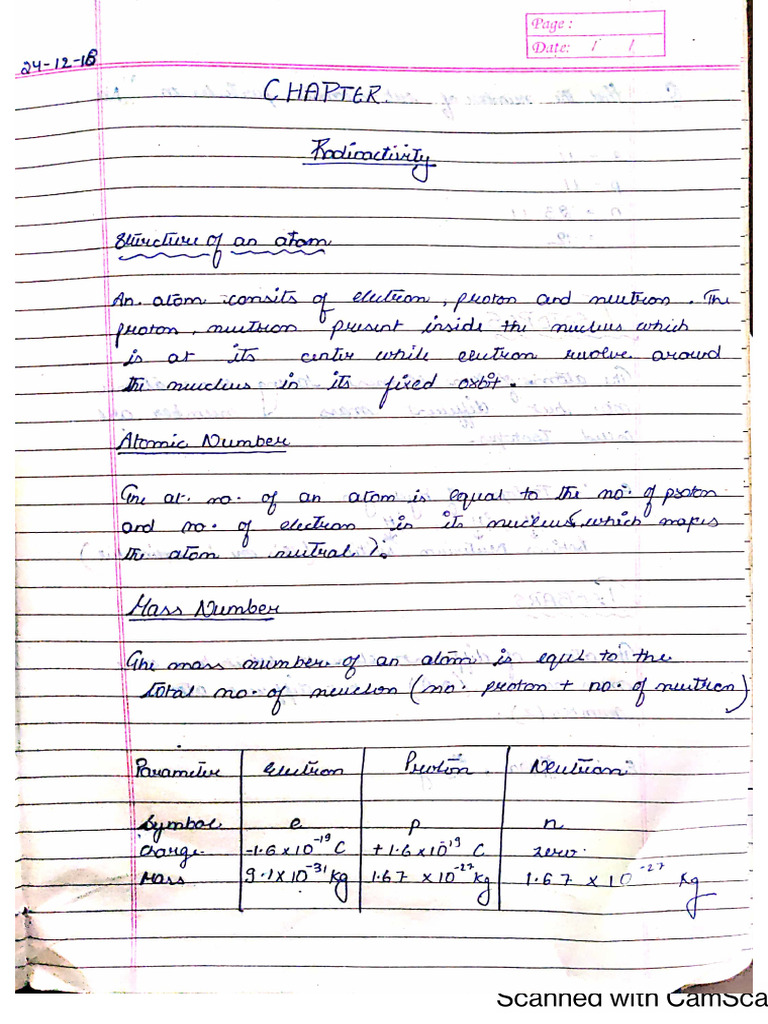 Page :
Date: / /
24-12-18
CHAPTER.
Radioactivity
Structure of an atom
An atom consits of electron, proton and neutron. The
proton, neutron present inside the nucleus which
is at its center while electron revolve around
the nucleus in its fixed orbit.
Atomic Number
The at. no. of an atom is equal to the no. of proton
and no. of electron is its nucleus (which makes
the atom neutral).
Mass Number
The mass number of an atom is equl to the
total no. of neuclon (no. proton + no. of neutron)
Parameter Electron Proton Neutron
Symbol e p n
Charge -1.6 x 10⁻¹⁹ C +1.6 x 10¹⁹ C zero.
Mass 9.1 x 10⁻³¹ kg 1.67 x 10⁻²⁷ kg 1.67 x 10⁻²⁷ kg
Scanned with CamSca